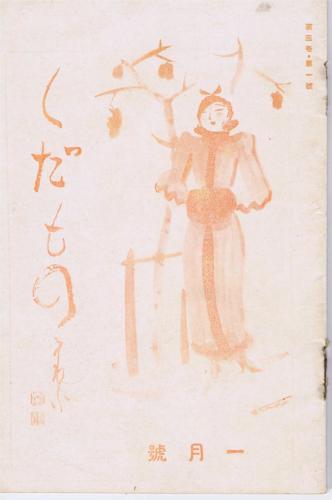 第三巻・第一號
くだもの
一月號